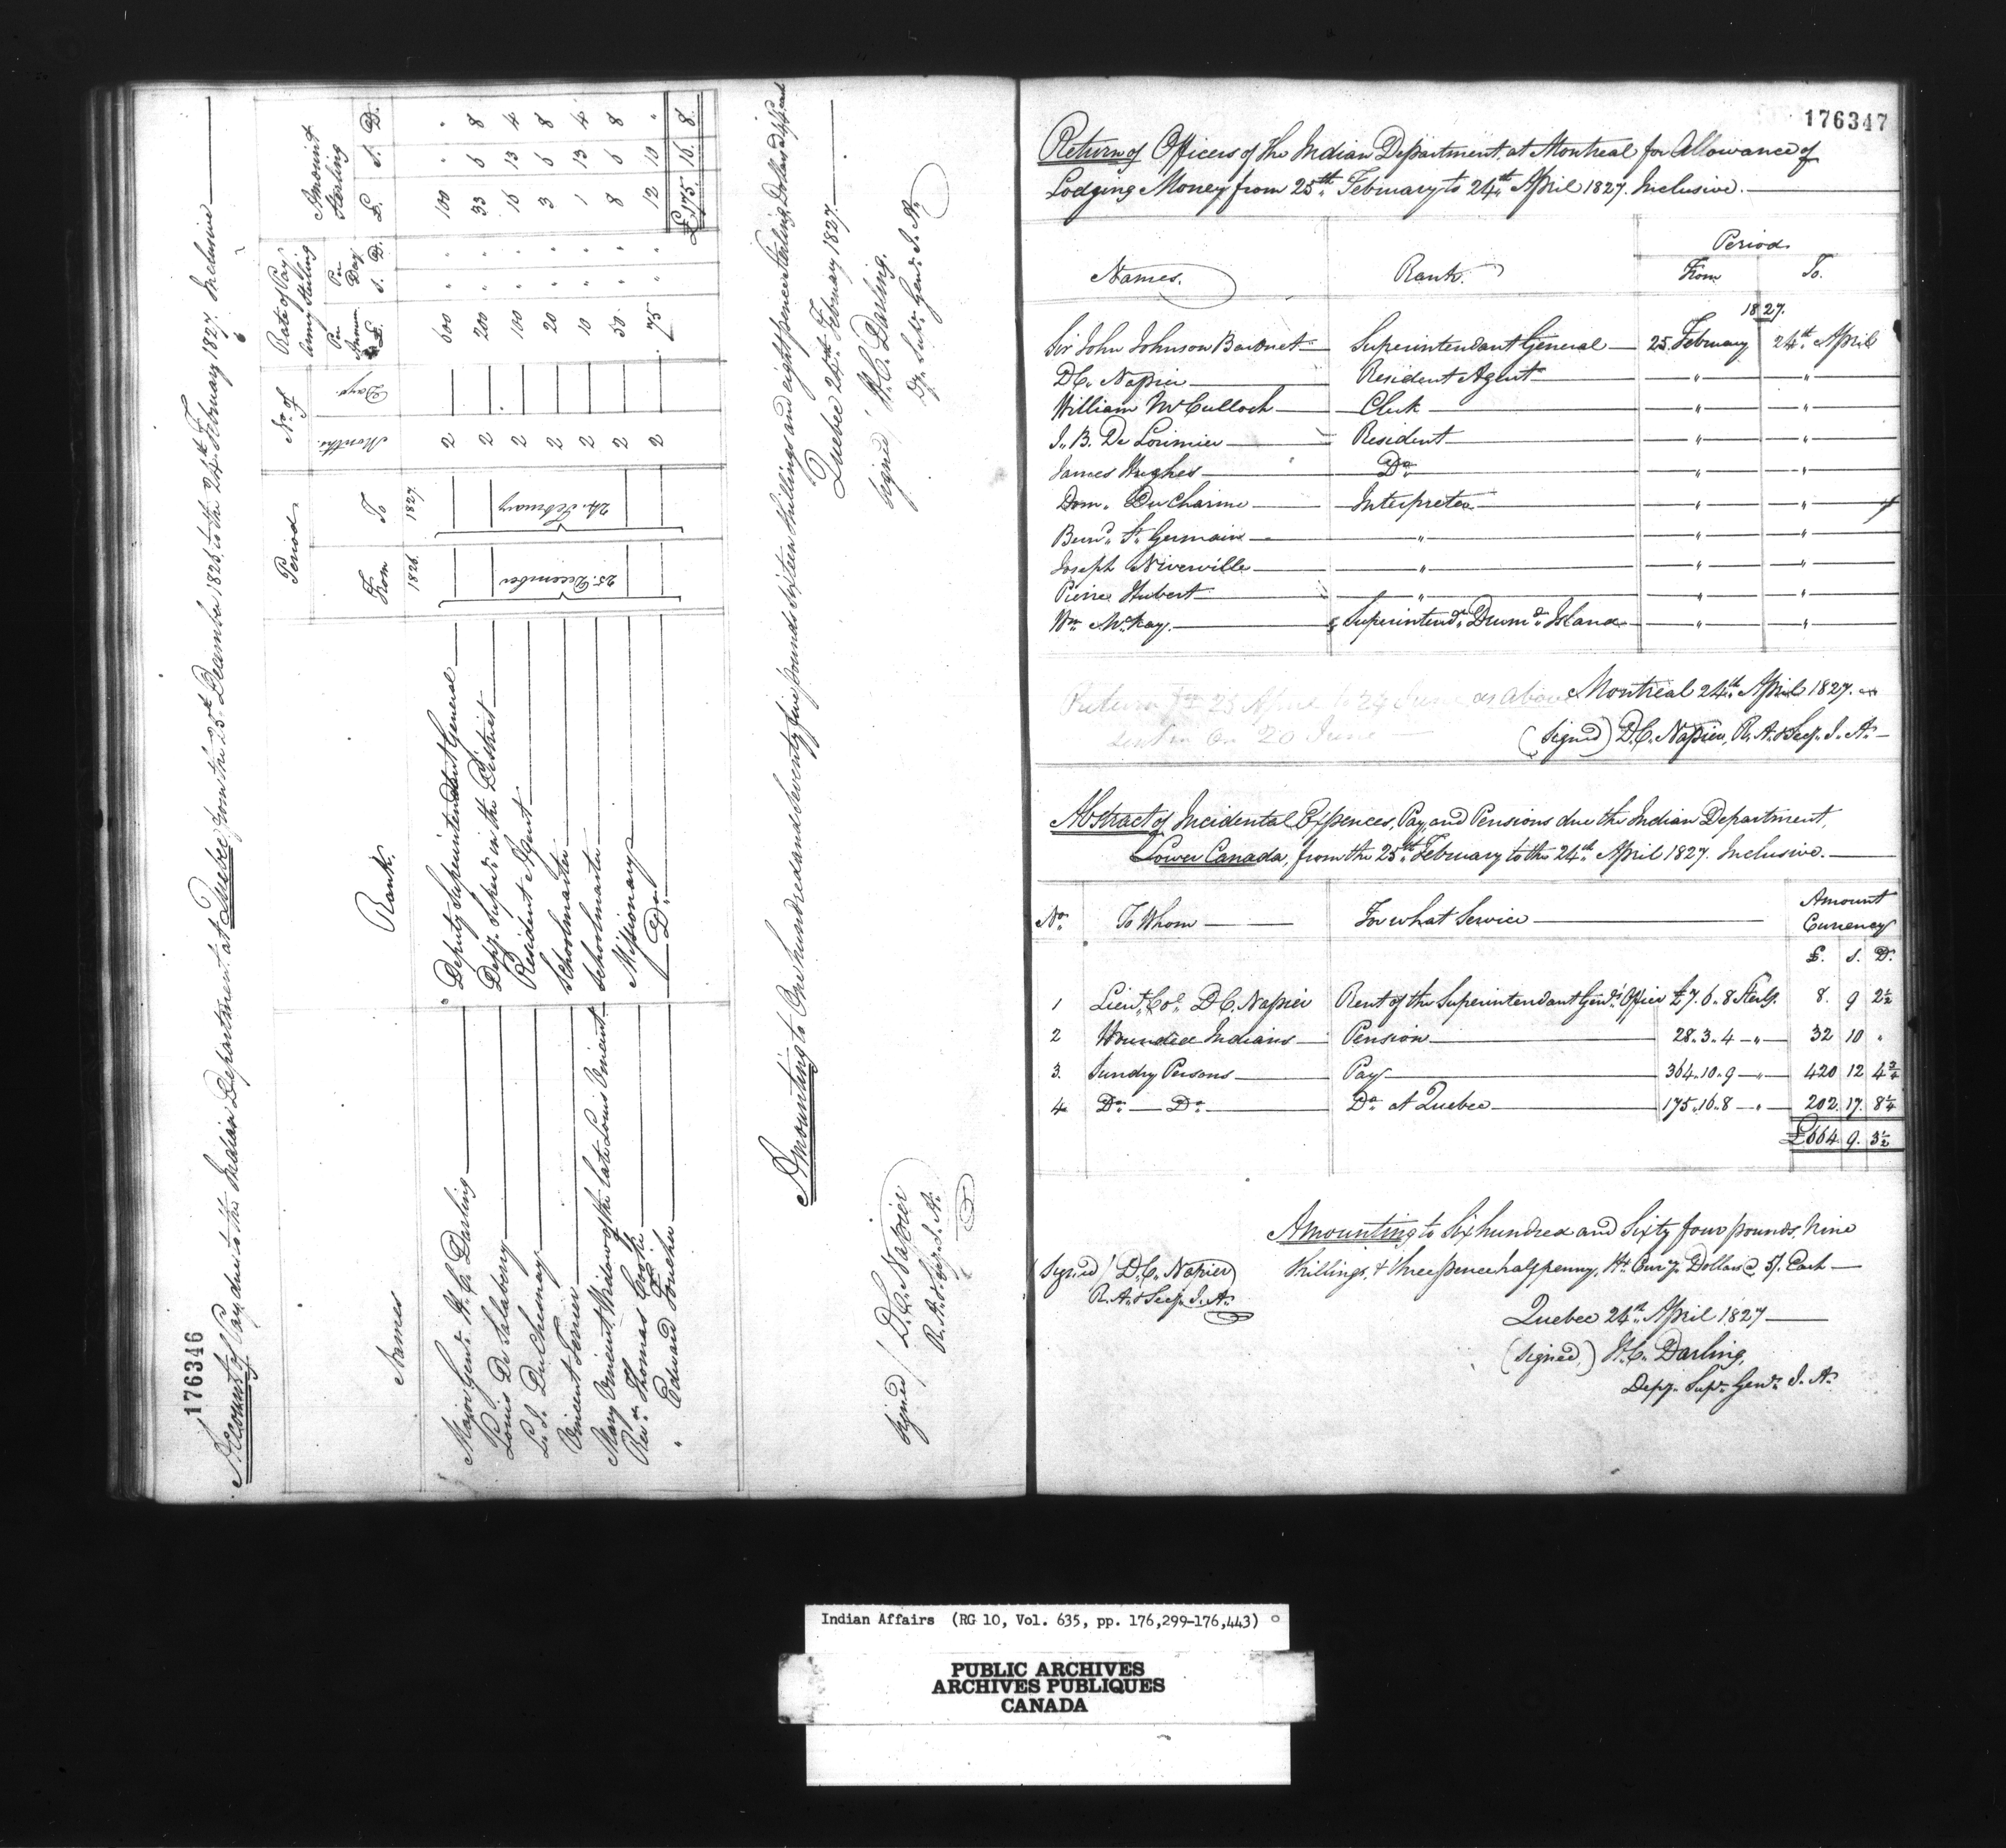 176346
Account of Pay due to the Indian Department at Quebec from the 25th December 1826 to the 24th February 1827. Inclusive
Names | Rank. | Period | No. of | Rate of Pay Army Sterling | Amount Sterling
From | To | Months. | Days. | Per Annum | Per Day
£. | S. D. | £. S. D.
1826. | 1827.
Major Genl. H. C. Darling | Deputy Superintendent General | 25. December | 24. February | 2 | 600 " " | 100 " "
Louis De Salaberry | Depy. Superdt. in the District | 2 | 200 " " | 33 6 8
L. J. DuChesnay | Resident Agent | 2 | 100 " " | 16 13 4
Vincent Ferrier | Schoolmaster | 2 | 20 " " | 3 6 8
Mary Vincent Widow of the late Louis Vincent | Schoolmaster | 2 | 10 " " | 1 13 4
Revd. Thomas Cooke | Missionary | 2 | 50 " " | 8 6 8
" Edward Faucher | Do. | 2 | 75 " " | 12 10 "
£175. 16. 8.
Amounting to One hundred and Seventy five pounds Sixteen Shillings and eight pence Sterling, Dollars
Quebec 24th. February 1827.
Signed / D. C. Napier
R. A. & Secy. I. A.
Signed / H. C. Darling.
Dy. Supr. Genl. I. A.
176347
Return of Officers of the Indian Department, at Montreal for Allowance of
Lodging Money from 25th. February to 24th. April 1827. Inclusive.
Period.
Names. | Rank. | From | To.
1827.
Sir John Johnson Baronet | Superintendant General | 25. February | 24th. April
D. C. Napier | Resident Agent | " | "
William McCulloch | Clerk | " | "
J. B. De Lorimier | Resident | " | "
James Hughes | Do. | " | "
Dom. DuCharme | Interpreter | " | "
Bernd. St. Germain | " | " | "
Joseph Niverville | " | " | "
Pierre Hubert | " | " | "
Wm. McKay. | Superintendt. Drumd. Island | " | "
Montreal 24th. April 1827.
Return fr 25 April to 24 June as above
sent in On 20 June
(Signed) D. C. Napier, R. A. & Secy. I. A.
Abstract of Incidental Expences, Pay, and Pensions due the Indian Department,
Lower Canada, from the 25th. February to the 24th. April 1827. Inclusive.
No. | To Whom | For what Service | Amount Currency
£. S. D.
1 | Lieut. Col. D. C. Napier | Rent of the Superintendant Genls. Office £7. 6. 8 Sterlg. | 8. 9 2½
2 | Wounded Indians | Pension 28. 3. 4 " | 32 10 "
3. | Sundry Persons | Pay 364. 10. 9 " | 420 12 4¾
4. | Do. Do. | Do. at Quebec 175. 16. 8 " | 202. 17. 8¼
£664 9. 3½
Amounting to Six hundred and Sixty four pounds, Nine
Shillings, & three pence half penny, Hx. Curcy. Dollars @ 5/. Each
(Signed) D. C. Napier
R. A. & Secy. I. A.
Quebec 24th. April 1827
(Signed,) H. C. Darling,
Depy. Supr. Genl. I. A.
Indian Affairs (RG 10, Vol. 635, pp. 176,299-176,443)
PUBLIC ARCHIVES
ARCHIVES PUBLIQUES
CANADA